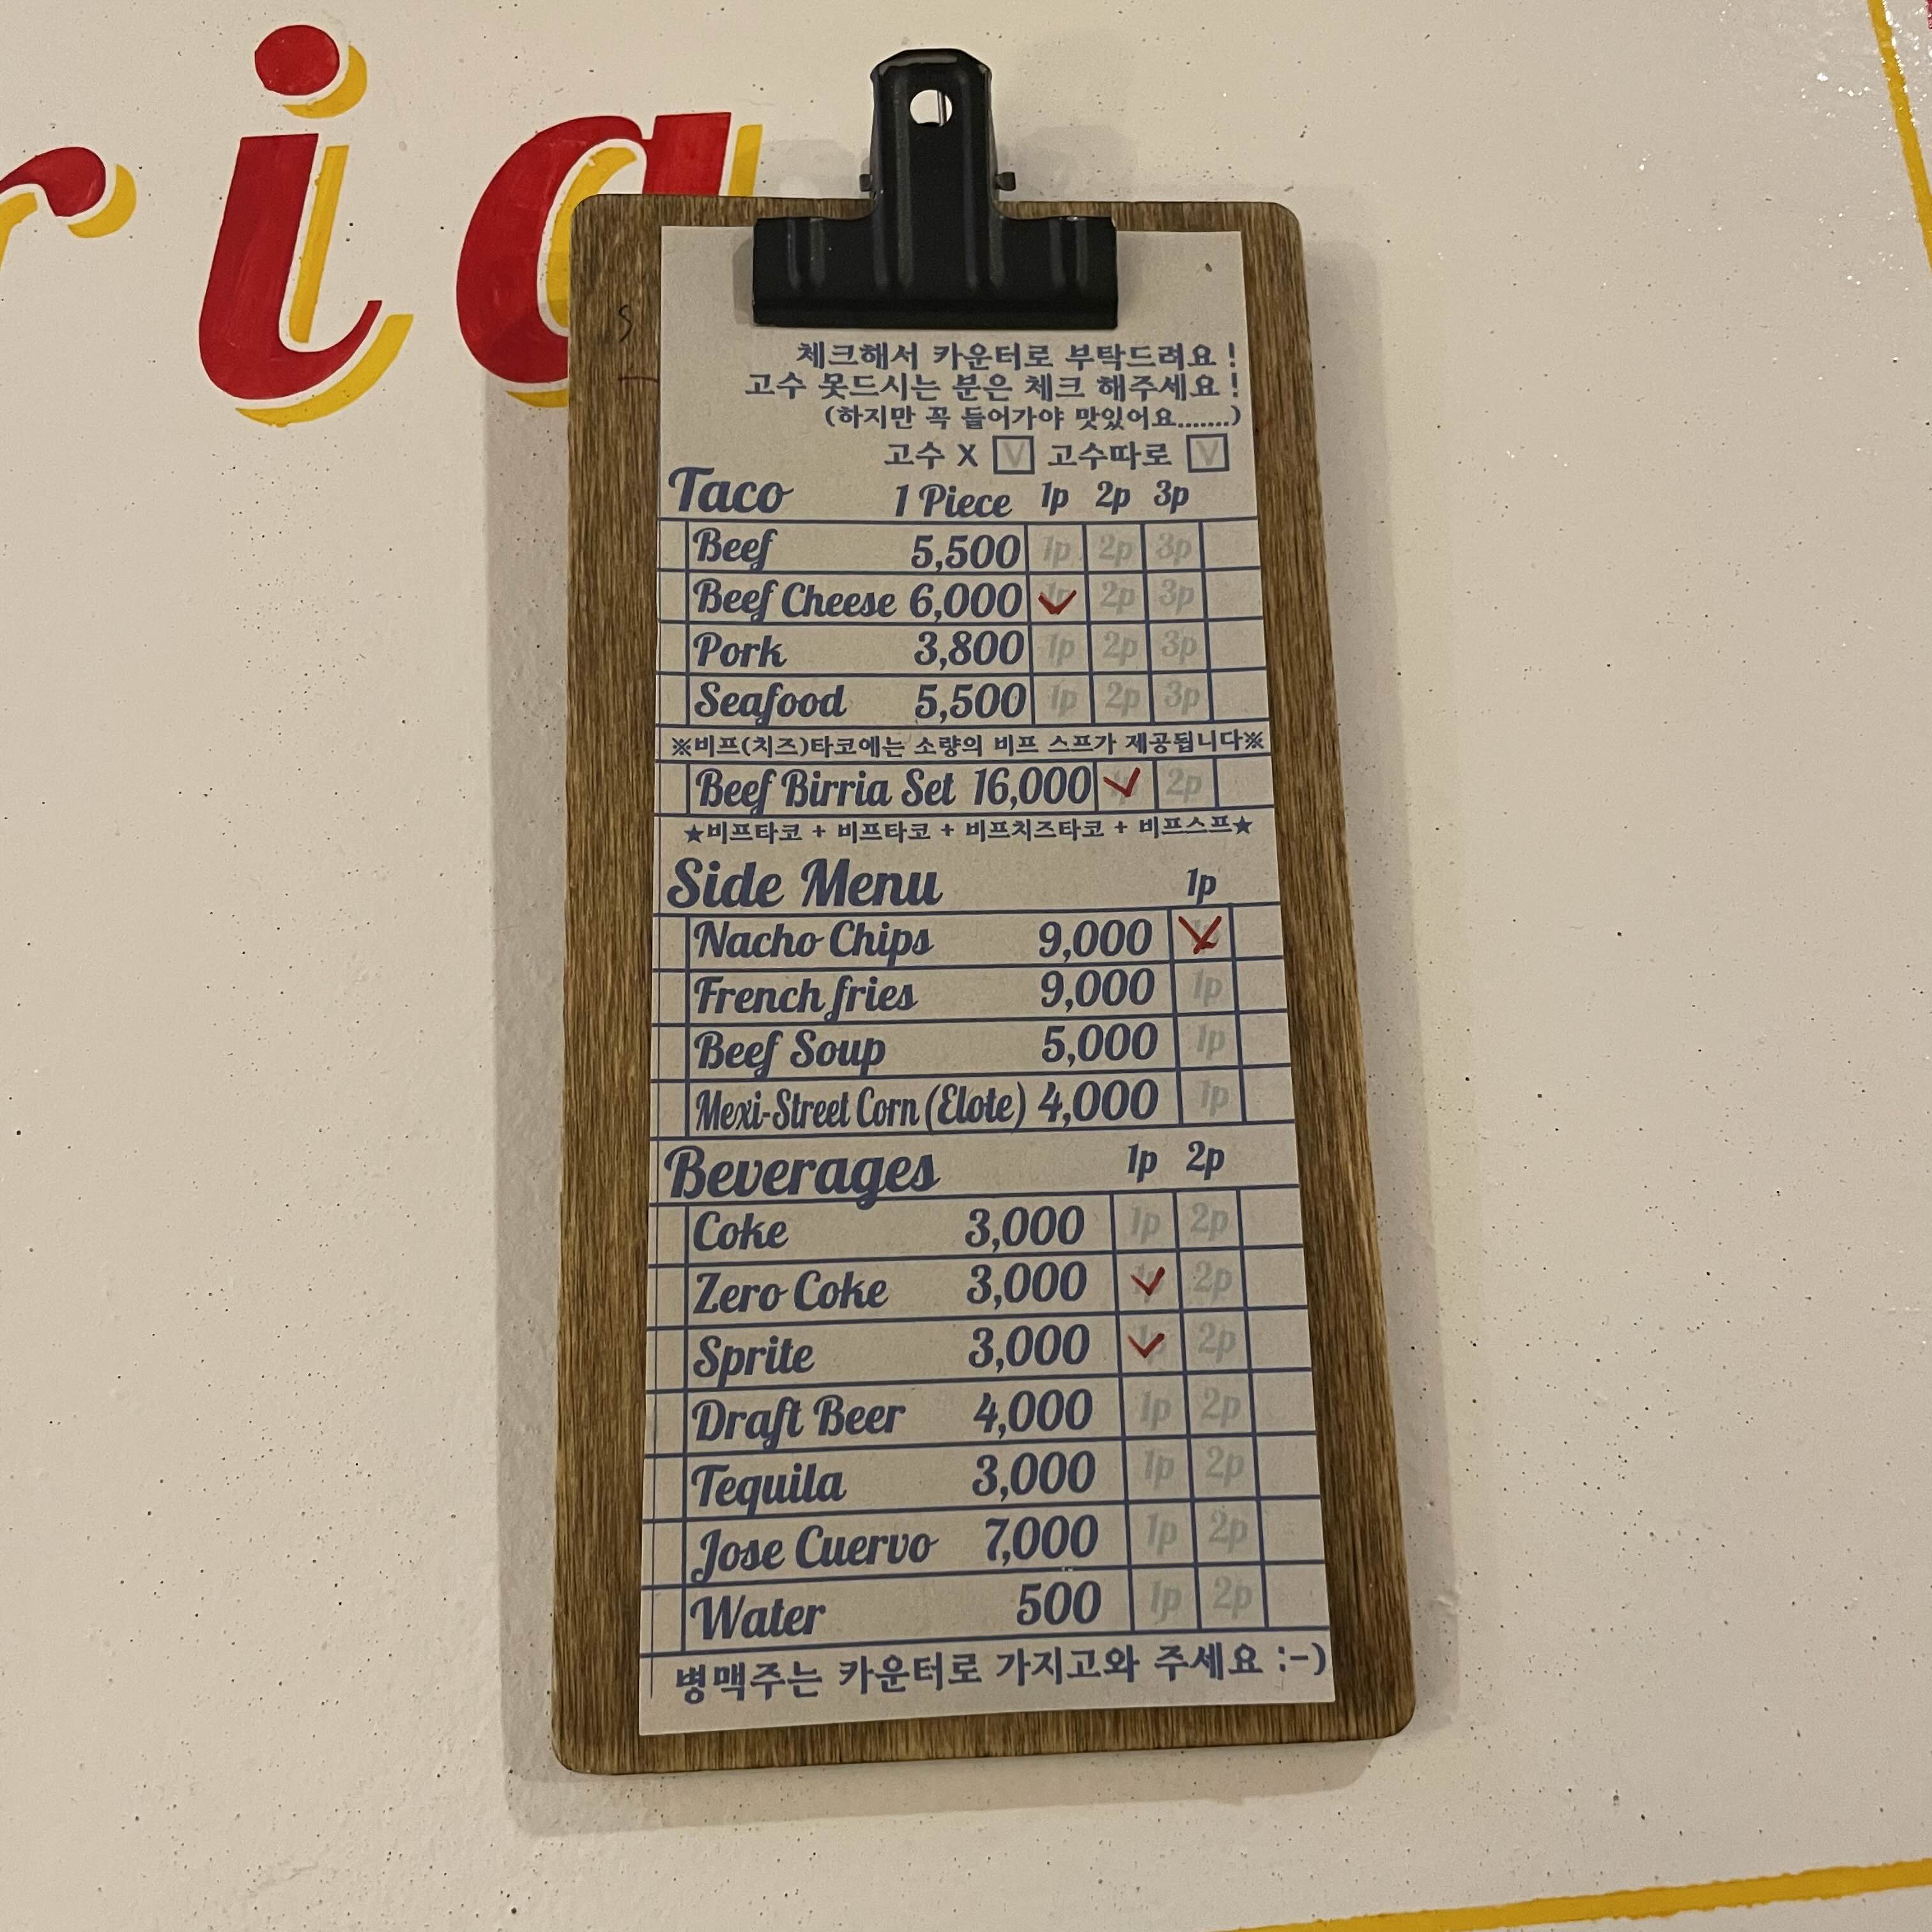 ria
체크해서 카운터로 부탁드려요!
고수 못드시는 분은 체크 해주세요!
(하지만 꼭 들어가야 맛있어요.......)
고수 X V 고수따로 V
Taco 1 Piece 1p 2p 3p
Beef 5,500 1p 2p 3p
Beef Cheese 6,000 2p 3p
Pork 3,800 1p 2p 3p
Seafood 5,500 1p 2p 3p
※비프(치즈)타코에는 소량의 비프 스프가 제공됩니다※
Beef Birria Set 16,000 2p
★비프타코 + 비프타코 + 비프치즈타코 + 비프스프★
Side Menu 1p
Nacho Chips 9,000
French fries 9,000 1p
Beef Soup 5,000 1p
Mexi-Street Corn (Elote) 4,000 1p
Beverages 1p 2p
Coke 3,000 1p 2p
Zero Coke 3,000 2p
Sprite 3,000 2p
Draft Beer 4,000 1p 2p
Tequila 3,000 1p 2p
Jose Cuervo 7,000 1p 2p
Water 500 1p 2p
병맥주는 카운터로 가지고와 주세요 :-)